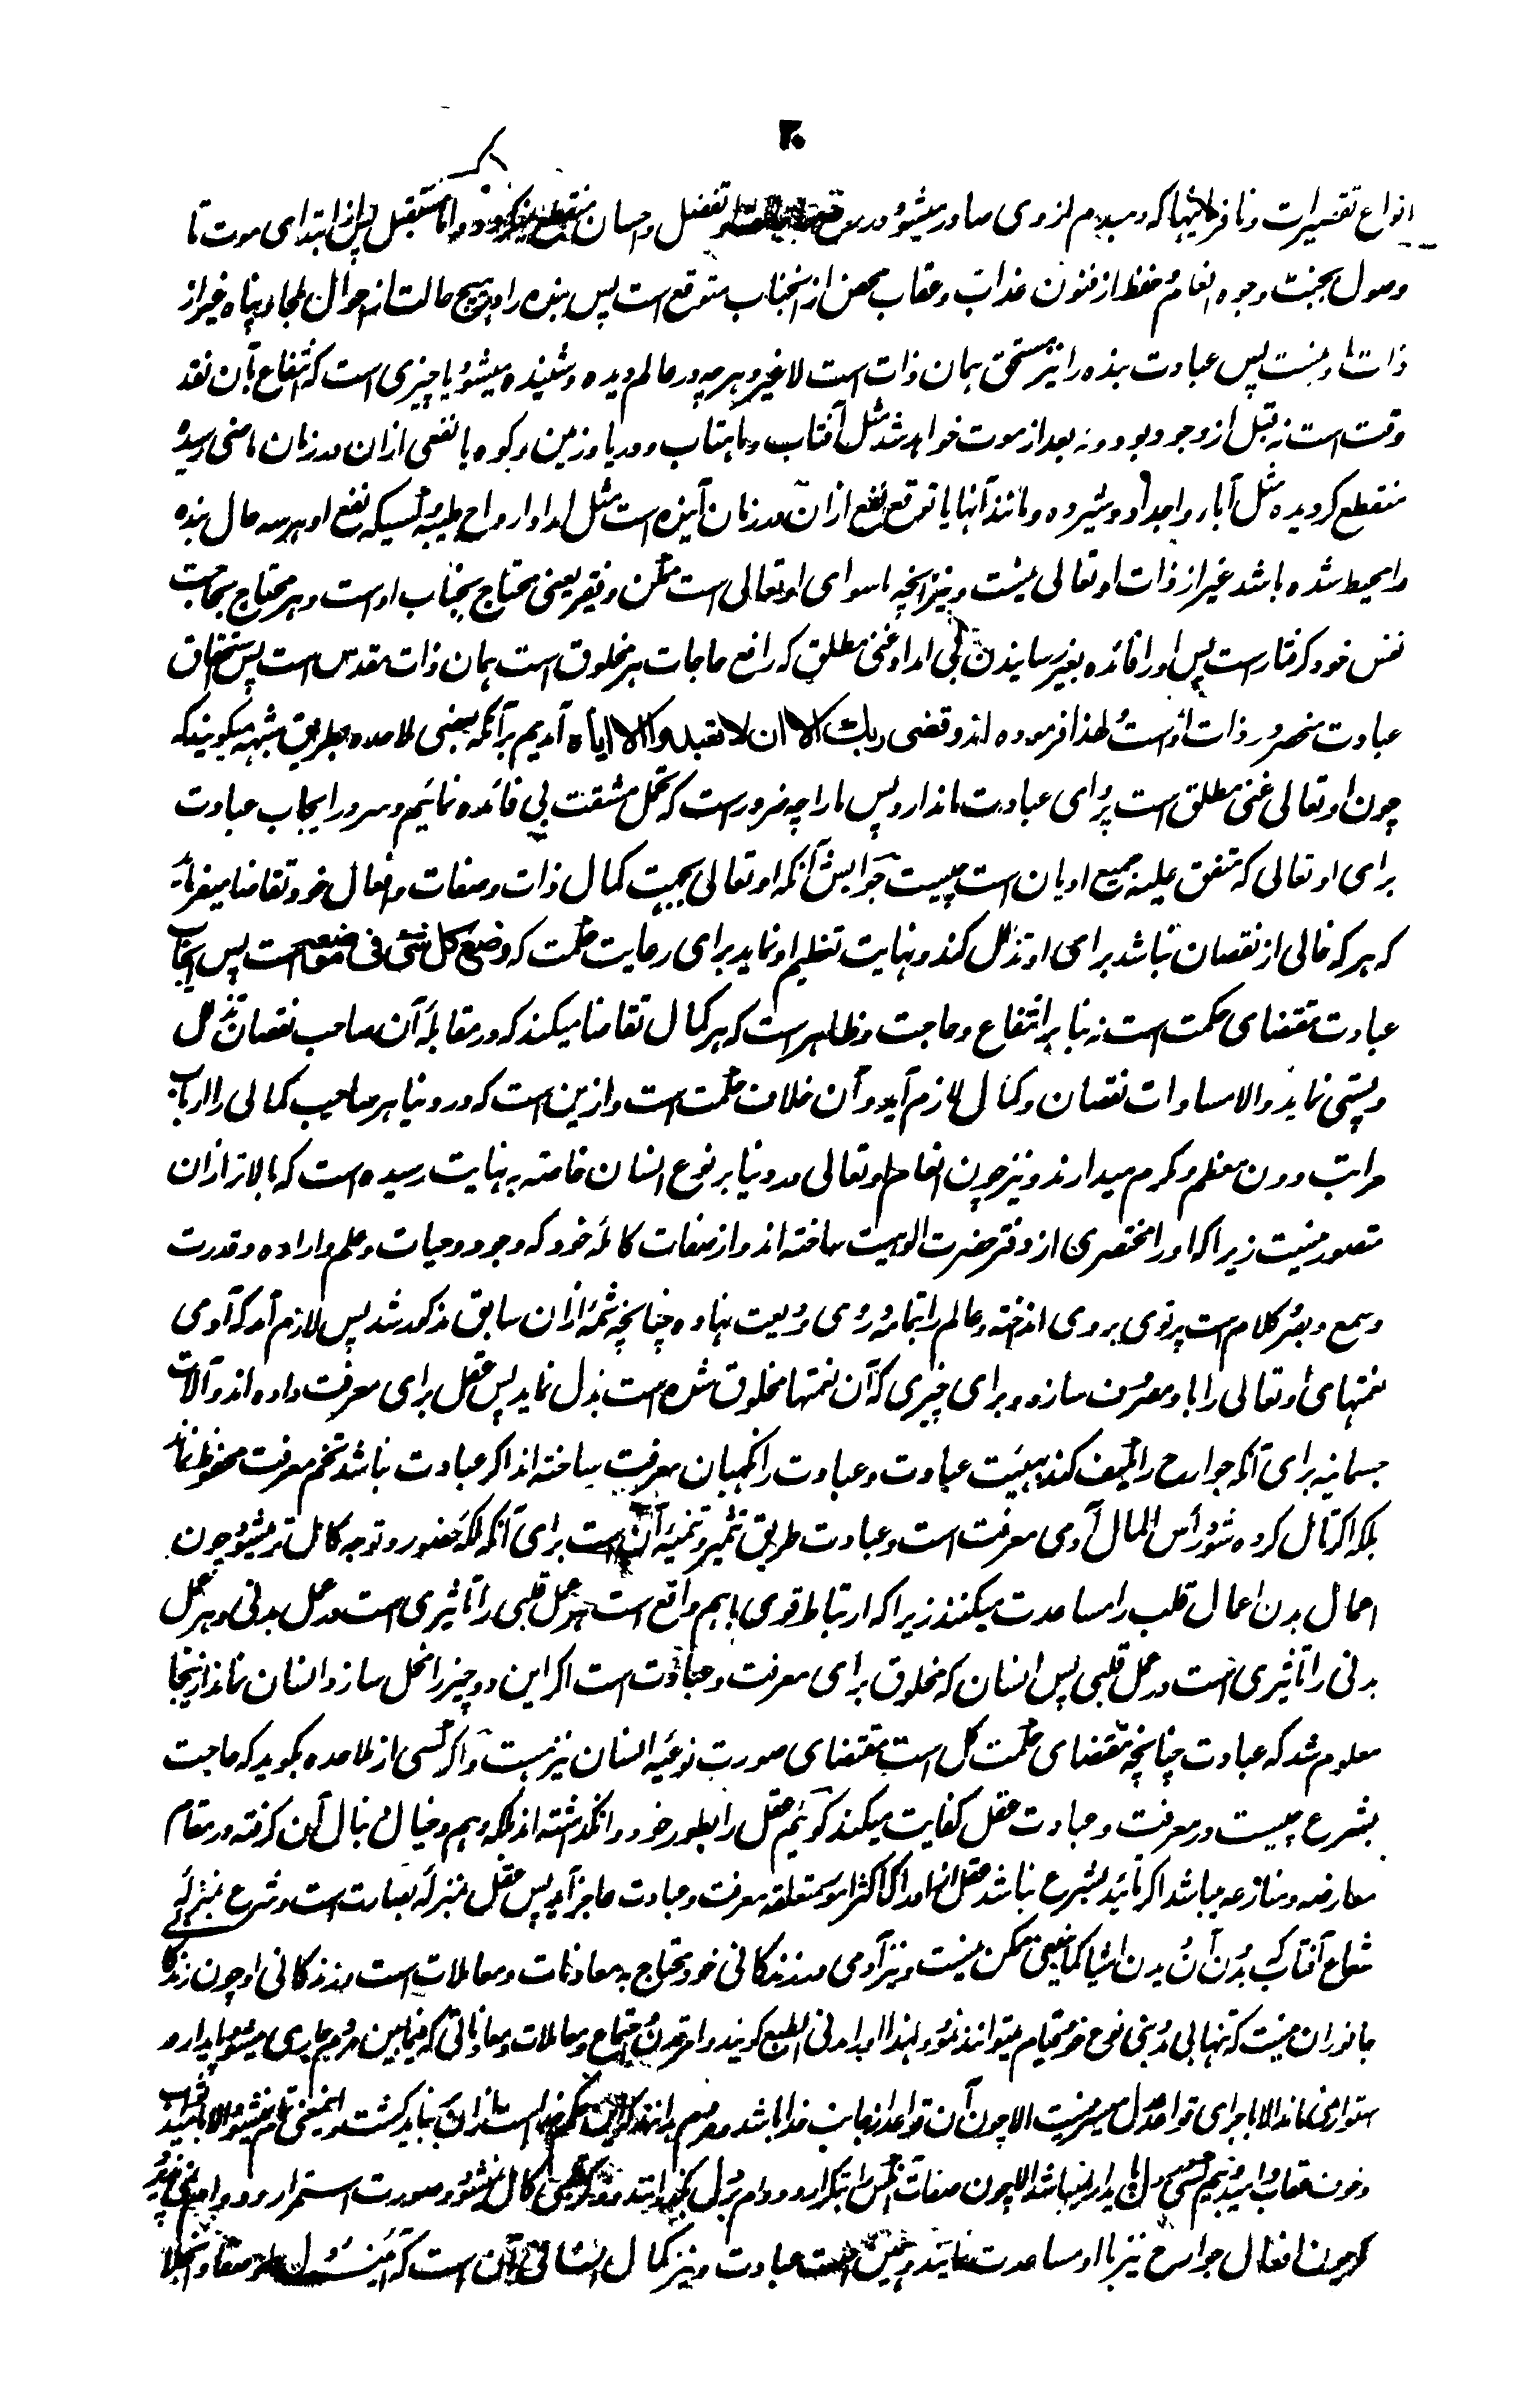 ۲۰
انواع تقصیرات و نافرمانیها که دمبدم از وی صادر میشود در هیچ تفضل و احسان منقطع و اما مستقبل پس از ابتدای موت تا
وصول بجنت وجوه انعام و حفظ از فنون عذاب و عقاب محض از انجناب متوقع است پس بنده را در هیچ حالت از احوال ملجا و پناه غیر از
ذات او نیست پس عبادت بنده را نیز مستحق همان ذات است لا غیر و هر چه در عالم دیده و شنیده میشود یا چیزی است که انتفاع بآن نقد
وقت است نه قبل از وجود بود و نه بعد از موت خواهد شد مثل آفتاب و ماهتاب و دریا و زمین و کوه یا نفعی ازان در زمان ماضی رسیده
منقطع گردیده مثل آباء و اجداد و شیر ده و مانند آنها یا توقع نفع ازان در زمان آینده است مثل امداد ارواح طیبه کسیکه نفع او بهر سه حال بنده
را محیط شده باشد غیر از ذات او تعالی نیست و نیز انچه ماسوای او تعالی است ممکن و فقیر یعنی محتاج بجناب اوست و هر محتاج بحاجت
نفس خود گرفتار است پس او را فائده بغیر رسانیدن بی امداد غنی مطلق که رافع حاجات هر مخلوق است همان ذات مقدس است پس استحقاق
عبادت منحصر در ذات اوست و لهذا فرموده اند و قضی ربك الا ان لا تعبدوا الا ایاه آمدیم برآنکه بعضی ملاحده بطریق شبهه میگویند که
چون او تعالی غنی مطلق است پروای عبادت ما ندارد پس ما را چه ضرور است که تحمل مشقت بی فائده نمائیم و سر در ایجاب عبادت
برای او تعالی که متفق علیه جمیع ادیان است چیست جوابش آنکه او تعالی بجهت کمال ذات و صفات و افعال خود تقاضا میفرماید
که هر که خالی از نقصان نباشد برای او تذلل کند و نهایت تعظیم او نماید برای رعایت حکمت که وضع کل شئ فی موضعه است پس ایجاب
عبادت مقتضای حکمت است نه بنا بر انتفاع و حاجت و ظاهر است که هر کمال تقاضا میکند که در مقابلۀ آن صاحب نقصان تذلل
و پستی نماید و الا مساوات نقصان و کمال لازم آید و آن خلاف حکمت است و ازین است که در دنیا هر صاحب کمالی را ارباب
مراتب دون معظم و مکرم میدارند و نیز چون انعام او تعالی در دنیا بر نوع انسان خاصة به نهایت رسیده است که بالاتر ازان
متصور نیست زیرا که او را مختصری از دفتر حضرت الوهیت ساخته اند و از صفات کامله خود که وجود و حیات و علم و اراده و قدرت
و سمع و بصر و کلام است پرتوی بر وی انداخته و عالم را بتمامه در وی ودیعت نهاده چنانچه شمۀ ازان سابق مذکور شد پس لازم آمد که آدمی
نعمتهای او تعالی را باو مصرف سازد و برای چیزی که آن نعمتها مخلوق شده است بذل نماید پس عقل برای معرفت داده اند و آلات
جسمانیه برای آنکه جوارح را مکیف کند بهیئت عبادت و عبادت را نگهبان معرفت ساخته اند اگر عبادت نباشد تخم معرفت محفوظ نماند
بلکه اگر تامل کرده شود رأس المال آدمی معرفت است و عبادت طریق تثمیر و تنمیۀ آن است برای آنکه ملکۀ حضور و توجه کامل تر میشود چون
اعمال بدن اعمال قلب را مساعدت میکنند زیرا که ارتباط قوی باهم واقع است هر عمل قلبی را تاثیری است در عمل بدنی و هر عمل
بدنی را تاثیری است در عمل قلبی پس انسان که مخلوق برای معرفت و عبادت است اگر این دو چیز را مختل سازد انسان نماند ازینجا
معلوم شد که عبادت چنانچه مقتضای حکمت کل است مقتضای صورت نوعیۀ انسان نیز هست و اگر کسی از ملاحده بگوید که حاجت
بشرع چیست در معرفت و عبادت عقل کفایت میکند گوئیم عقل را بطور خود وا نگذاشته اند بلکه وهم و خیال دنبال آن گرفته در مقام
معارضه و منازعه میباشد اگر تائید بشرع نباشد عقل از ادراک اکثر امور متعلقه معرفت و عبادت عاجز آید پس عقل بمنزلۀ بصارت است و شرع بمنزلۀ
شعاع آفتاب که بدون آن دیدن اشیا کما ینبغی ممکن نیست و نیز آدمی در زندگانی خود محتاج به معاونات و معاملات است و زندگانی او چون زندگانی
جانوران نیست که تنهائی در بنی نوع خود قیام میتوانند نمود و لهذا او را مدنی الطبع گویند و امر تمدن و اجتماع و معاملات و معاوناتی که فیمابین مردم جاری میشود پایدار و
استوار نماند الا باجرای قواعد عدل میسر نیست الا چون آن قواعد از جانب خدا باشد و مردم بدانند که این حکم خداست ازان نباید گذشت و این معنی تمام نمیشود الا بامید ثواب
و خوف عقاب و امید و بیم پایدار نمیباشد الا چون صفات بتکرار و دوام کامل نمیشود و صورت استمرار و دوام
که چون افعال جوارح نیز با او مساعدت نمایند و همین است عبادت و نیز کمال انسانی آن است که آئینۀ دل